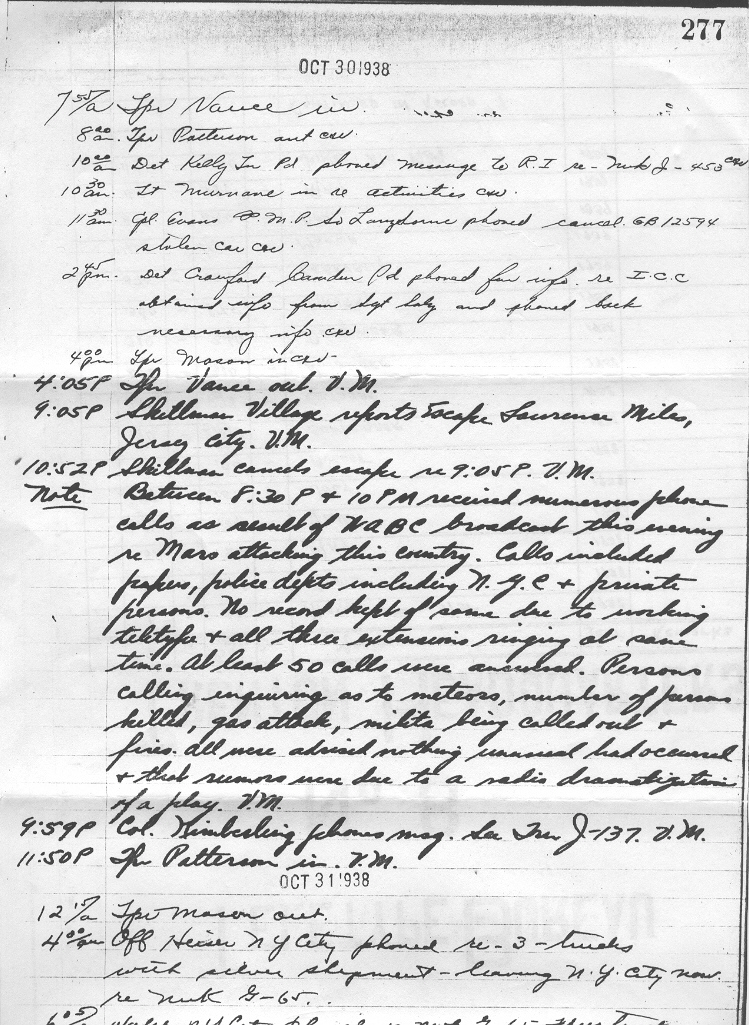 277
OCT 30 1938
7 55/a Tpr Vance in.
8 00 am. Tpr Patterson out
10 00 am Det Kelly Pd phoned message to R.I re- Nwk J-453
10 30 am. Lt Murnane in re activities
11 30 am. Cpl. Evans P.M.P. So Langhorne phoned cancel. GB12594
stolen car
2 45 pm. Det Crawford Camden Pd phoned for info. re I.C.C
obtained info from Sgt and phoned back
necessary info
4 00 pm Tpr Mason in
4:05P Tpr Vance out. V.M.
9:05P Skillman Village reports Escape Lawrence Miles,
Jersey City. V.M.
10:52P Skillman cancels escape re 9:05P. V.M.
Note Between 8:30P + 10PM received numerous phone
calls as result of WABC broadcast this evening
re Mars attacking this country. Calls included
papers, police depts including N.Y.C + private
persons. No record kept of same due to working
teletype + all three extensions ringing at same
time. At least 50 calls were answered. Persons
calling inquiring as to meteors, number of persons
killed, gas attack, militia being called out +
fires. All were advised nothing unusual had occurred
+ that rumors were due to a radio dramatization
of a play. V.M.
9:59P Col. Kimberling phones msg. See Tren J-137. V.M.
11:50P Tpr Patterson in. V.M.
OCT 31 1938
12 15/a Tpr Mason out.
4 00 am Off Heiser N Y City phoned re- 3 - trucks
with silver shipment - leaving N.Y. City now.
re Nwk G-65.
6 05/